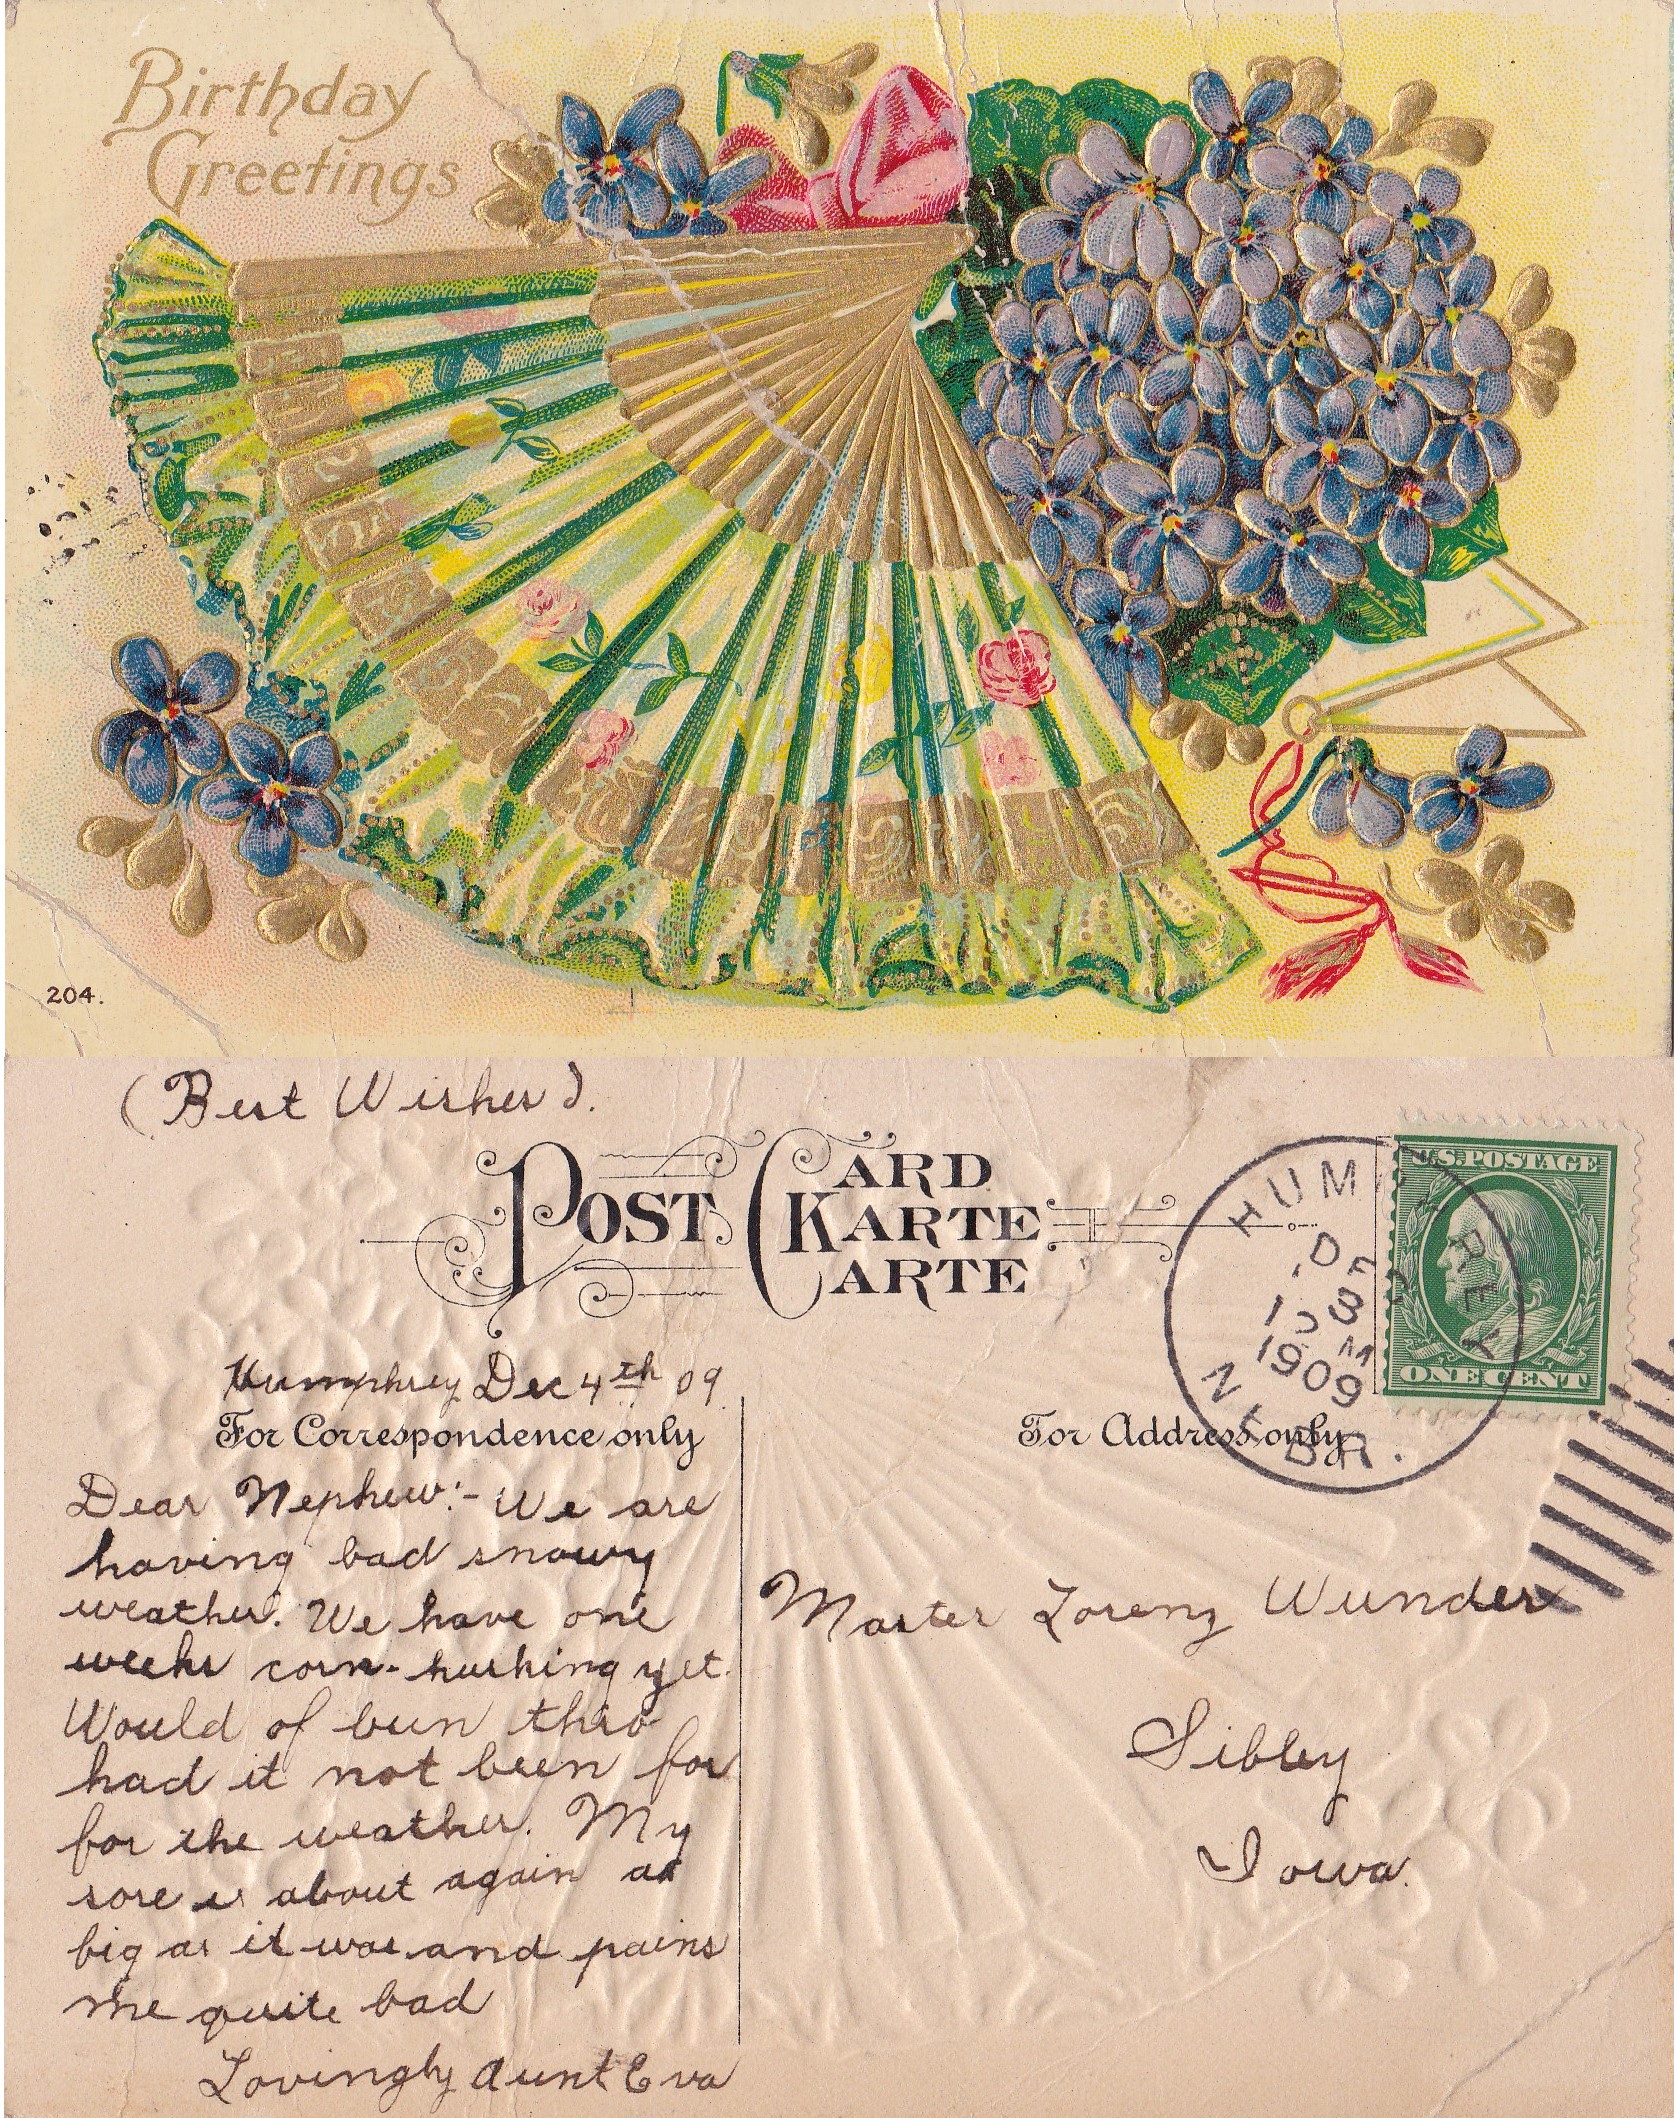 Birthday
Greetings
204.
(Best Wishes).
POST CARD
KARTE
CARTE
HUMPHREY
DEC
1909
NEBR.
U.S. POSTAGE
ONE CENT
Humphrey Dec 4th 09
For Correspondence only
For Address only
Dear Nephew:- We are
having bad snowy
weather. We have one
weeks corn-husking yet.
Would of been thro
had it not been for
for the weather. My
sore is about again as
big as it was and pains
me quite bad
Lovingly Aunt Eva
Master Lorenz Wunder
Sibley
Iowa.